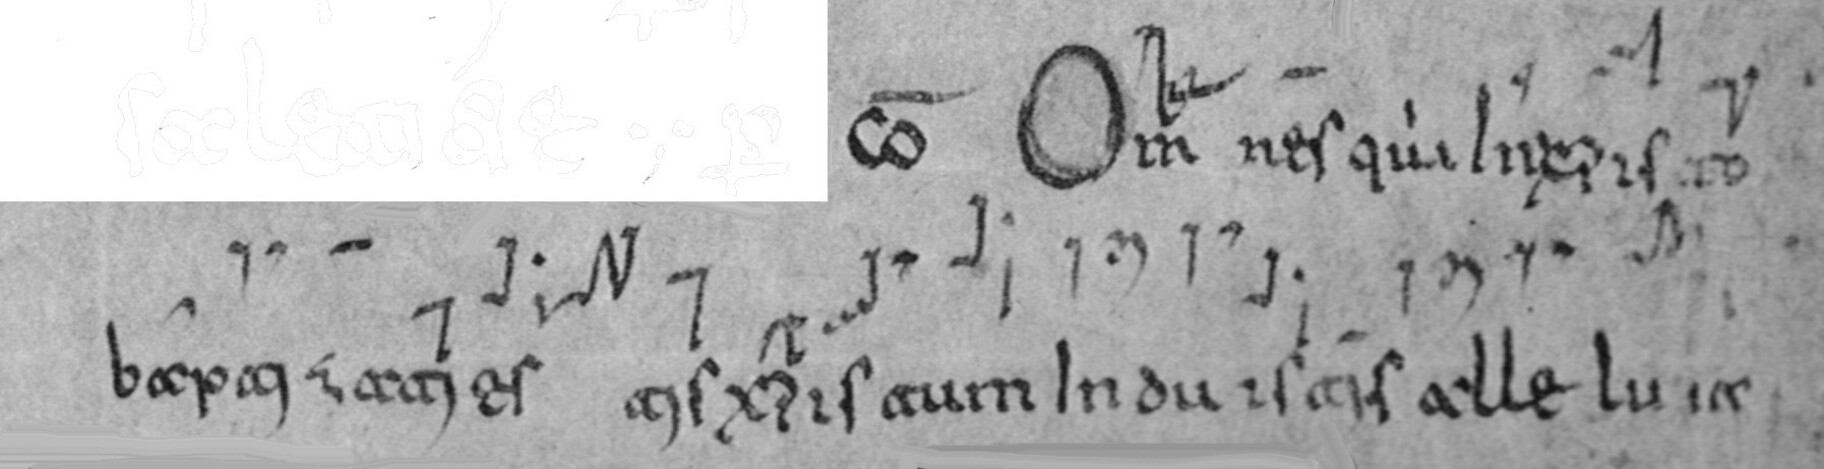 co̅ Om nes qui In xp̅is to
bapti zati es tis xp̅is tum In du is tis alle lu ia